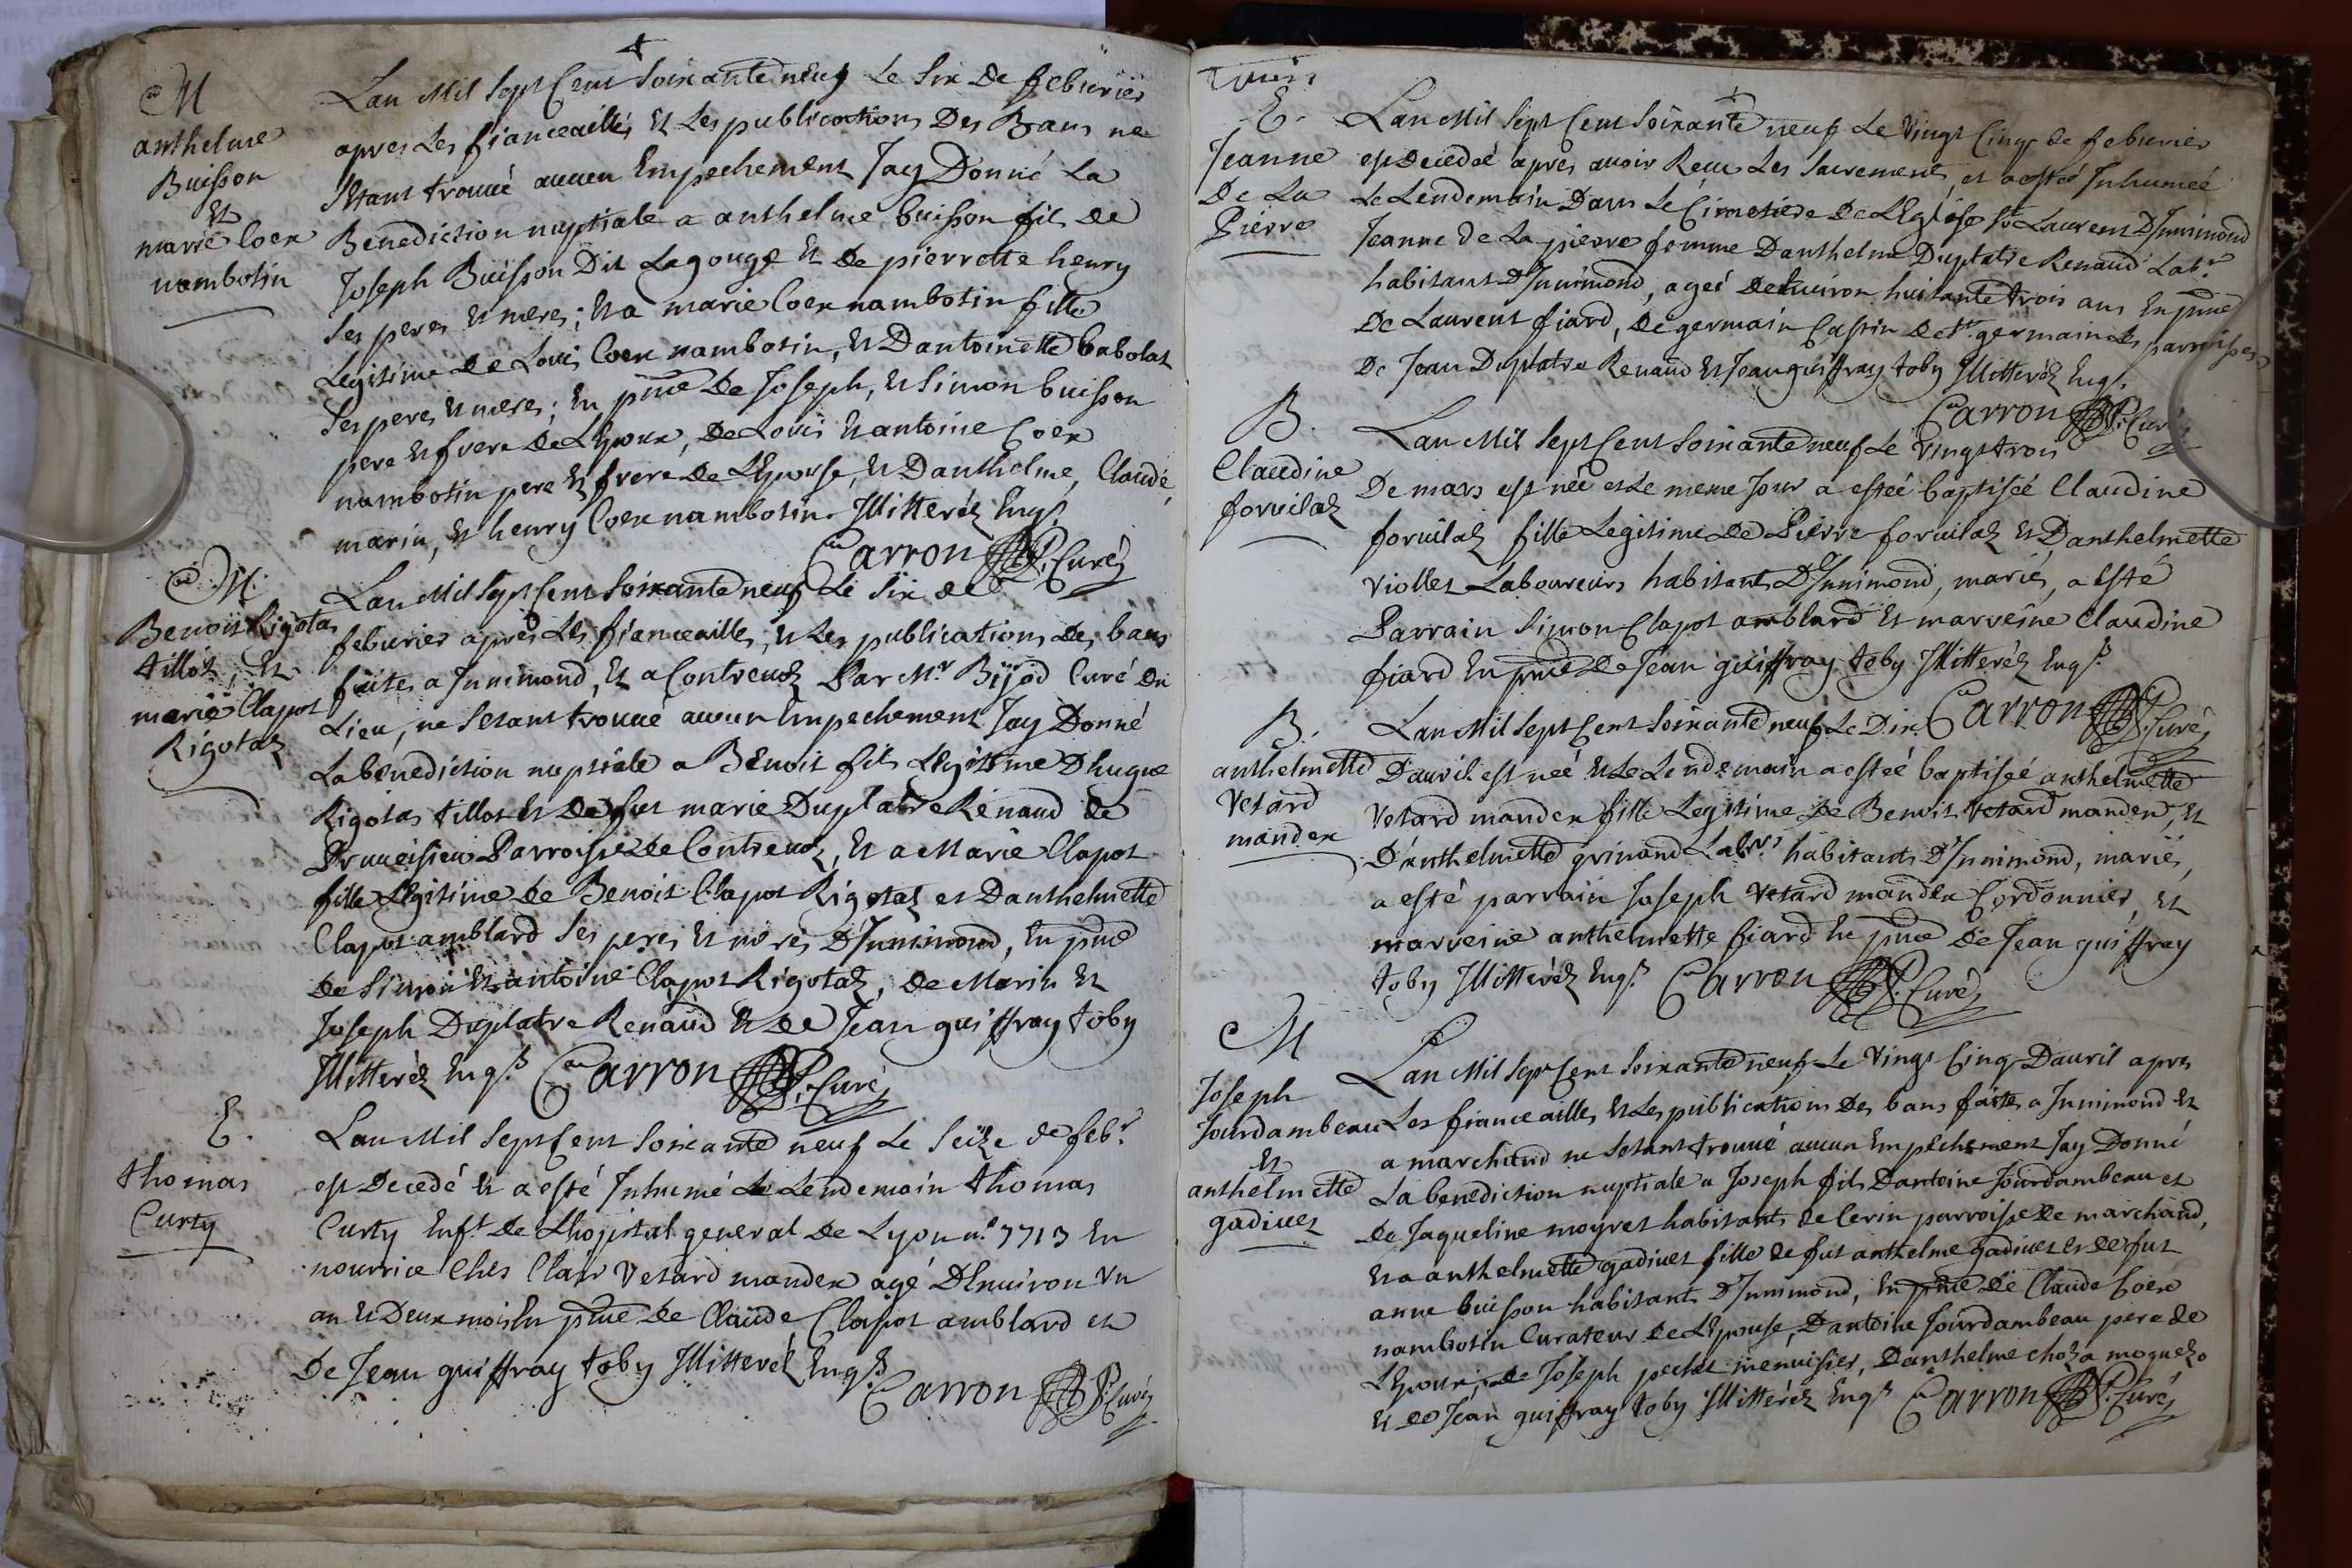 M
anthelme
Buisson
Et
marie Coex
nambotin
Lan Mil Sept Cent Soixante neuf Le Six De feburier
apres Les fianceailles Et Les publications Des Bans ne
Setant trouué aucun Empechement Jay Donné La
Benediction nuptiale a anthelme buisson fils de
Joseph Buisson Dit Lagouge Et De pierrette henry
Ses peres Et meres; Et a marie Coex nambotin fille
Legitime de Louis Coex nambotin, Et Dantoinette babolat
Ses peres Et meres; En pnce De Joseph, Et Simon buisson
pere Et frere De LEpoux, De Louis Et antoine Coex
nambotin pere Et frere de LEpouse, Et Danthelme, Claude,
marin, Et henry Coex nambotin. Illitteréz Enqs.
Carron Curé
M.
Benoit Rigotas
tillot, Et
marie Clapot
Rigotaz
Lan Mil Sept Cent Soixante neuf Le Six de
feburier apres Les fianceailles, Et Les publications des bans
faites a Innimond, Et a Contreuoz Par Mr Bijod Curé Du
Lieu, ne Setant trouué aucun Empechement Jay Donné
La benediction nuptiale a Benoit fils Legitime Dhugue
Rigotas tillot Et De fut marie Duplatre Renaud de
Pruueisieu Parroisse de Contreuoz, Et a Marie Clapot
fille Legitime De Benoit Clapot Rigotaz et Danthelmette
Clapot amblard Ses peres Et meres D'Innimond, En pnce
de Simon Et antoine Clapot Rigotaz, De Marin Et
Joseph Duplatre Renaud Et De Jean guiffray toby
Illitteréz Enqs. Carron Curé
E.
thomas
Curty
Lan Mil Sept Cent Soixante neuf Le Seize de febr.
est Decedé Et a esté Inhumé Le Lendemain thomas
Curty Enft de Lhopital general de Lyon n.o 7713 En
nourrice Chés Clair Vetard mandex agé DEnuiron Vn
an Et Deux mois En pnce De Claude Clapot amblard et
De Jean guiffray toby Illitteréz Enqs.
Carron Curé
E.
Jeanne
De La
Pierre
Lan Mil Sept Cent Soixante neuf Le Vingt Cinq de feburier
est Decedeé apres auoir Recu Les Sacrements, et a esteé Inhumeé
Le Lendemain Dans Le Cimetiere De LEglise St Laurent D'Innimond
Jeanne De La pierre femme Danthelme Duplatre Renaud Labr.
habitant D'Innimond, ageé DEnuiron huitante trois ans En pnce
De Laurent fiard, De germain Castin De St germain Les parroisses
De Jean Duplatre Renaud Et Jean guiffray toby Illitteréz Enqs.
Carron Curé
B.
Claudine
foruilaz
Lan Mil Sept Cent Soixante neuf Le Vingt trois
De mars est neé et Le meme Jour a esteé baptiseé Claudine
foruilaz fille Legitime De Pierre foruilaz Et Danthelmette
Viollet Laboureurs habitants D'Innimond, mariés, a Esté
Parrain Simon Clapot amblard Et marreine Claudine
fiard En pnce De Jean guiffray toby Illitteréz Enqs.
Carron Curé
B.
anthelmette
Vetard
mandex
Lan Mil Sept Cent Soixante neuf Le Dix
Dauril est neé Et Le Lendemain a esteé baptiseé anthelmette
Vetard mandex fille Legitime De Benoit Vetard mandex, Et
D'anthelmette grinand Labrs. habitants D'Innimond, mariés,
a esté parrain Joseph Vetard mandex Cordonnier, Et
marreine anthelmette fiard En pnce De Jean guiffray
toby Illitteréz Enqs. Carron Curé
M
Joseph
Jourdambeau
Et
anthelmette
gadiuet
Lan Mil Sept Cent Soixante neuf Le Vingt Cinq Dauril apres
Les fianceailles, Et Les publications Des bans faites a Innimond Et
a marchand ne Setant trouué aucun Empechement Jay Donné
La benediction nuptiale a Joseph fils Dantoine Jourdambeau et
De Jaqueline moyret habitants de Cerin parroisse De marchand,
Et a anthelmette gadiuet fille De fut anthelme gadiuet Et De fut
anne buisson habitants D'Innimond, En pnce De Claude Coex
nambotin Curateur De LEpouse, Dantoine Jourdambeau pere de
LEpoux, De Joseph pechet menuisier, Danthelme choza moquezo
Et De Jean guiffray toby Illitteréz Enqs Carron Curé